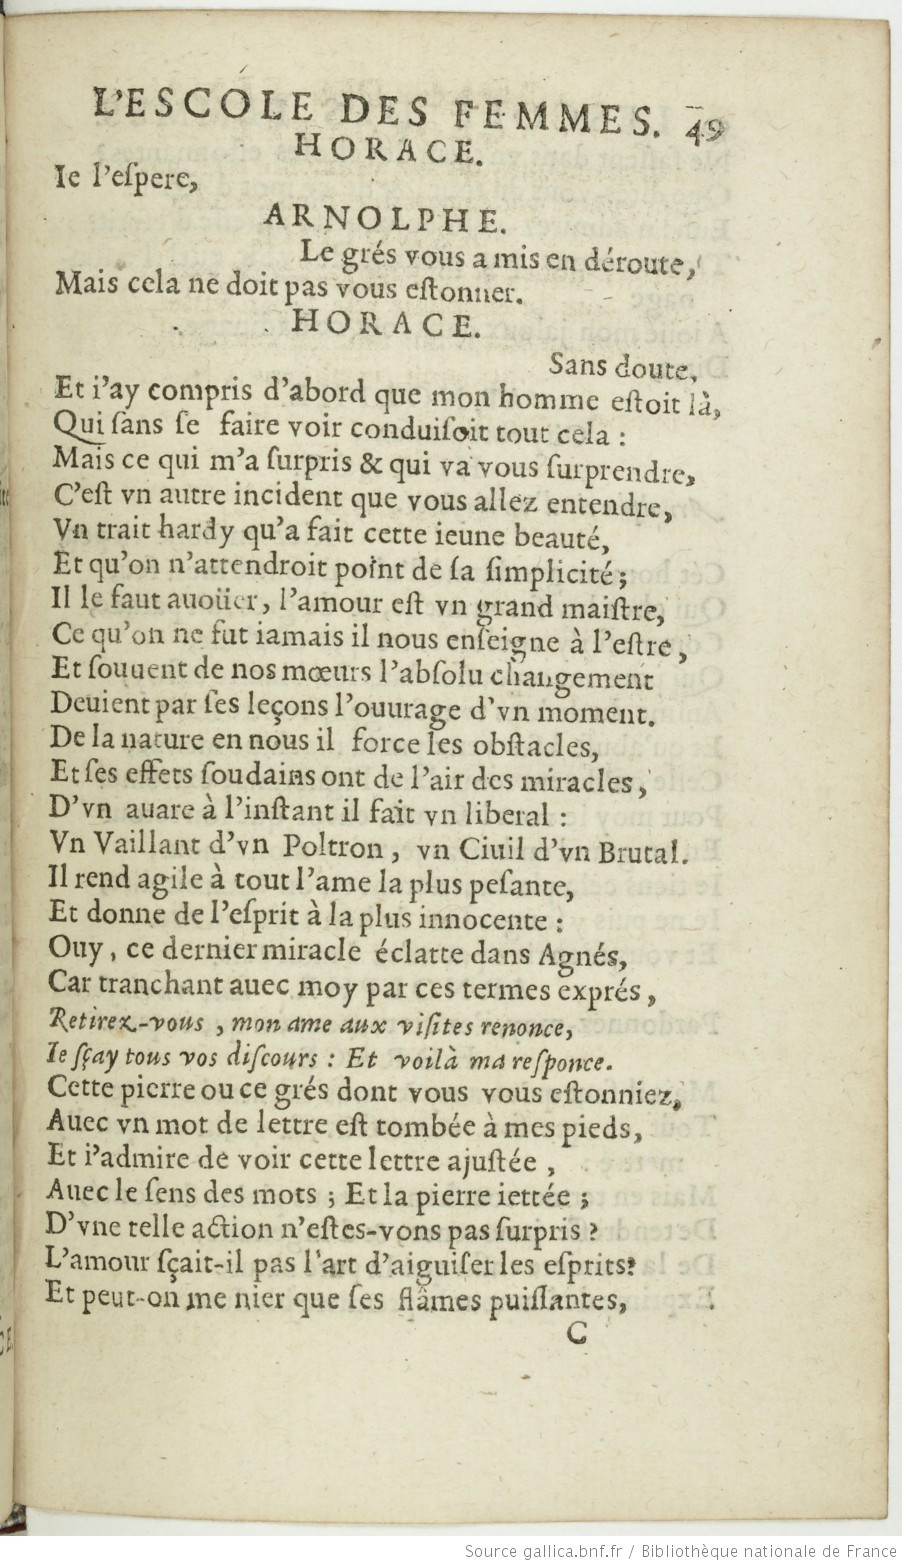 L'ESCOLE DES FEMMES. 49
HORACE.
Ie l'eſpere,
ARNOLPHE.
Le grés vous a mis en déroute,
Mais cela ne doit pas vous eſtonner.
HORACE.
Sans doute,
Et i'ay compris d'abord que mon homme eſtoit là,
Qui ſans ſe faire voir conduiſoit tout cela :
Mais ce qui m'a ſurpris & qui va vous ſurprendre,
C'eſt vn autre incident que vous allez entendre,
Vn trait hardy qu'a fait cette ieune beauté,
Et qu'on n'attendroit point de ſa ſimplicité ;
Il le faut auoüer, l'amour eſt vn grand maiſtre,
Ce qu'on ne fut iamais il nous enſeigne à l'eſtre,
Et ſouuent de nos mœurs l'abſolu changement
Deuient par ſes leçons l'ouurage d'vn moment.
De la nature en nous il force les obſtacles,
Et ſes effets ſoudains ont de l'air des miracles,
D'vn auare à l'inſtant il fait vn liberal :
Vn Vaillant d'vn Poltron, vn Ciuil d'vn Brutal.
Il rend agile à tout l'ame la plus peſante,
Et donne de l'eſprit à la plus innocente :
Ouy, ce dernier miracle éclatte dans Agnés,
Car tranchant auec moy par ces termes exprés,
Retirez-vous, mon ame aux viſites renonce,
Ie ſçay tous vos diſcours : Et voilà ma reſponce.
Cette pierre ou ce grés dont vous vous eſtonniez,
Auec vn mot de lettre eſt tombée à mes pieds,
Et i'admire de voir cette lettre ajuſtée,
Auec le ſens des mots ; Et la pierre iettée ;
D'vne telle action n'eſtes-vons pas ſurpris ?
L'amour ſçait-il pas l'art d'aiguiſer les eſprits?
Et peut-on me nier que ſes flâmes puiſſantes,
C
Source gallica.bnf.fr / Bibliothèque nationale de France